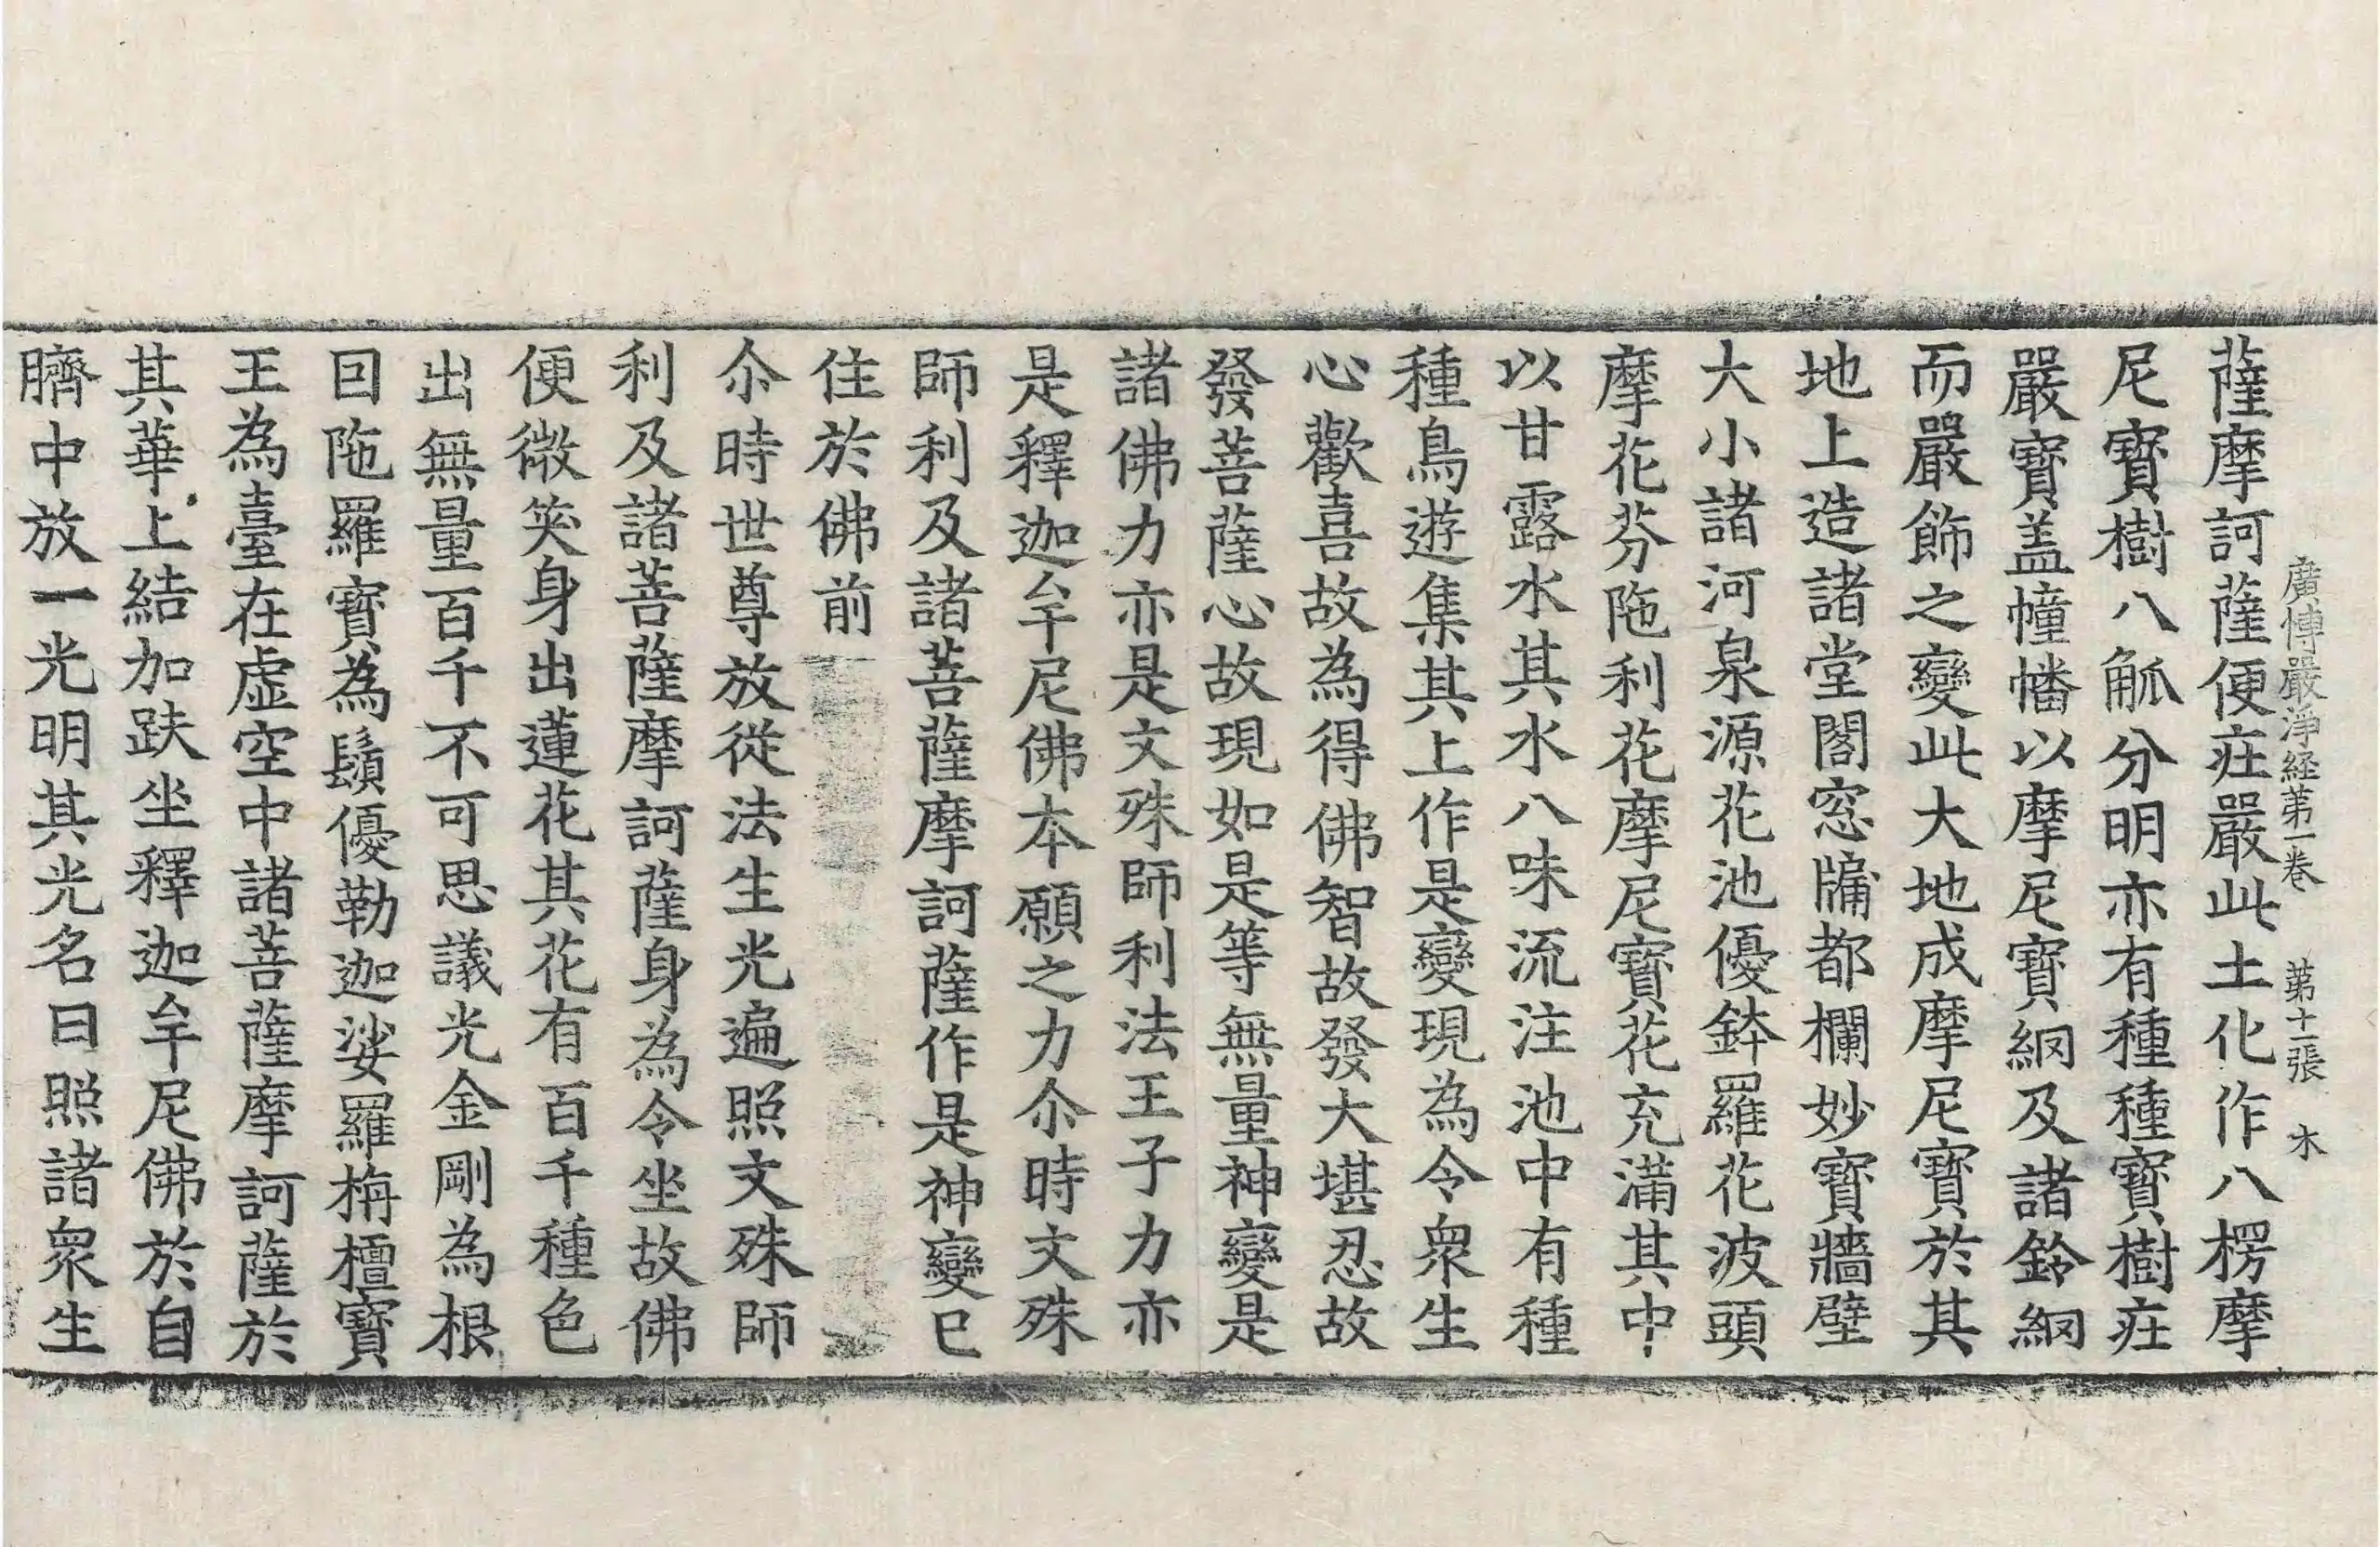 廣博嚴淨経第一卷 第十二張 木
薩摩訶薩便庄嚴此土化作八楞摩
尼寶樹八觚分明亦有種種寶樹庄
嚴寶盖幢幡以摩尼寶網及諸鈴網
而嚴飾之變此大地成摩尼寶於其
地上造諸堂閣窓牖都欄妙寶牆壁
大小諸河泉源花池優鉢羅花波頭
摩花芬陁利花摩尼寶花充滿其中
以甘露水其水八味流注池中有種
種鳥遊集其上作是變現為令衆生
心歡喜故為得佛智故發大堪忍故
發菩薩心故現如是等無量神變是
諸佛力亦是文殊師利法王子力亦
是釋迦牟尼佛本願之力尒時文殊
師利及諸菩薩摩訶薩作是神變已
住於佛前
尒時世尊放從法生光遍照文殊師
利及諸菩薩摩訶薩身為令坐故佛
便微笑身出蓮花其花有百千種色
出無量百千不可思議光金剛為根
因陁羅寶為鬚優勒迦娑羅栴檀寶
王為臺在虛空中諸菩薩摩訶薩於
其華上結加趺坐釋迦牟尼佛於自
臍中放一光明其光名曰照諸衆生